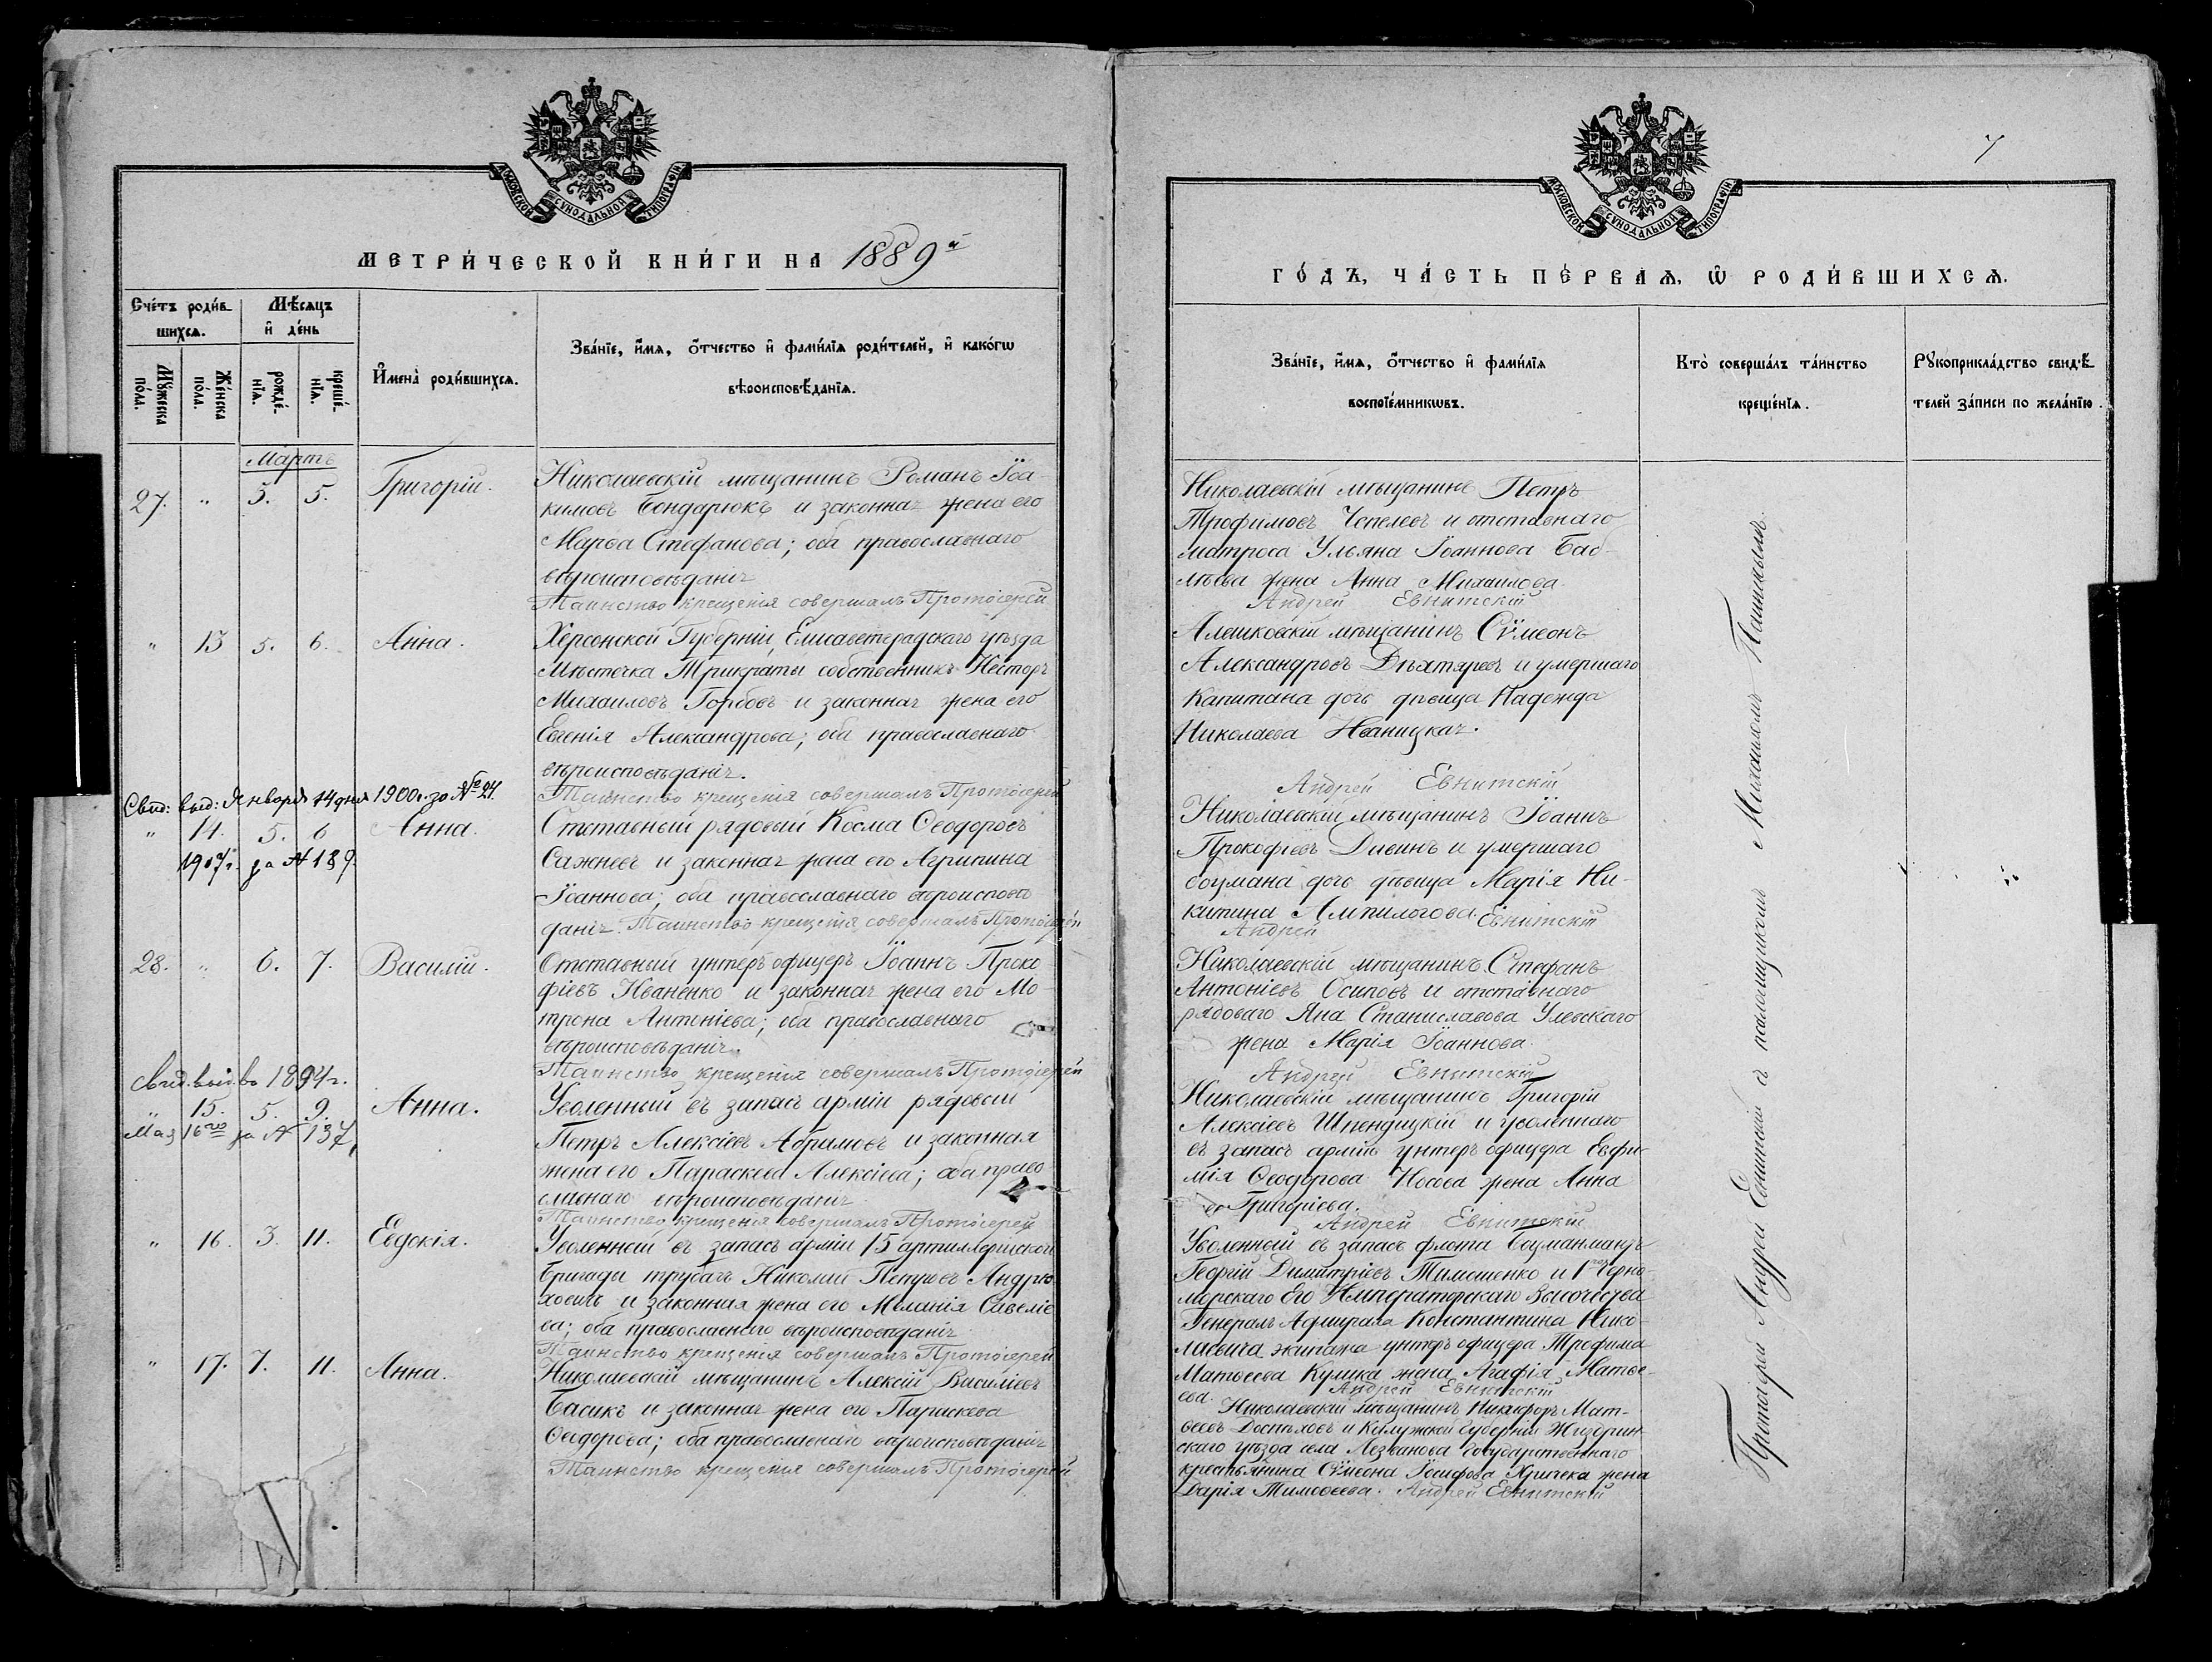 МОСКОВСКОЙ СѴНОДАЛЬНОЙ ТИПОГРАФІИ
МЕТРИ́ЧЕСКОЙ КНИ́ГИ НА 1889й
Сче́тъ роди́в-
шихсѧ.
Мѣ́сѧцъ
и҆ де́нь
Мꙋ́жеска
по́ла.
Же́нска
по́ла.
рожде́-
нїѧ.
креще́-
нїѧ.
И҆мена̀ роди́вшихсѧ.
Зва́нїе, и҆́мѧ, ѻ҆́тчество и҆ фами́лїѧ роди́телей, и҆ како́гѡ
вѣроисповѣ́данїѧ.
Мартъ
27. " 5. 5. Григорій.
Николаевскій мѣщанинъ Романъ Іоа-
кимовъ Бондарюкъ и законная жена его
Марѳа Стефанова; оба православнаго
вѣроисповѣданія
Таинство крещенія совершалъ Протоіерей
" 13 5. 6. Анна.
Херсонской Губерніи, Елисаветградскаго уѣзда
Мѣстечка Трикраты собственникъ Несторъ
Михаиловъ Горбовъ и законная жена его
Евгенія Александрова; оба православнаго
вѣроисповѣданія.
Таинство крещенія совершалъ Протоіерей
Свид: выд: Января 14 дня 1900г. за № 24.
" 14. 5. 6 Анна.
1907г. за № 189.
Отставный рядовый Косма Ѳеодоровъ
Сажневъ и законная жена его Агрипина
Іоаннова; оба православнаго вѣроисповѣ
данія. Таинство крещенія совершалъ Протоіерей
28. " 6. 7. Василій.
Отставный унтеръ офицеръ Іоаннъ Проко
фіевъ Иваненко и законная жена его Мо-
трона Антоніева; оба православнаго
вѣроисповѣданія.
Таинство крещенія совершалъ Протоіерей
Свид. выд. въ 1894г.
" 15. 5. 9. Анна.
Мая 16го за № 137,
Уволенный въ запасъ арміи рядовый
Петръ Алексіевъ Абрамовъ и законная
жена его Параскева Алексіева; оба право
славнаго вѣроисповѣданія
Таинство крещенія совершалъ Протоіерей
" 16. 3. 11. Евдокія.
Уволенный въ запасъ арміи 15 артиллерійской
бригады трубачъ Николай
и законная жена его Меланія Савеліе
ва; оба православнаго вѣроисповѣданія
Таинство крещенія совершалъ Протоіерей
" 17. 7. 11. Анна.
Николаевскій мѣщанинъ Алексій Василіевъ
Басикъ и законная жена его Параскева
Ѳеодорова; оба православнаго вѣроисповѣданія
Таинство крещенія совершалъ Протоіерей
7
МОСКОВСКОЙ СѴНОДАЛЬНОЙ ТИПОГРАФІИ
ГО́ДЪ, ЧА́СТЬ ПЕ́РВАѦ, Ѡ҆ РОДИ́ВШИХСѦ.
Зва́нїе, и҆́мѧ, ѻ҆́тчество и҆ фами́лїѧ
воспрїе́мникѡвъ.
Кто̀ соверша́лъ та́инство
креще́нїѧ.
Рꙋкоприкла́дство свидѣ́-
телей за́писи по жела́нїю.
Николаевскій мѣщанинъ Петръ
Трофимовъ Чепелевъ и отставнаго
матроса Ульяна Іоаннова Баб-
жена Анна Михаилова.
Андрей Евнитскій
Алешковскій мѣщанинъ Сѵмеонъ
Александровъ Дѣхтяревъ и умершаго
Капитана дочь дѣвица Надежда
Николаева Иваницкая.
Андрей Евнитскій
Николаевскій мѣщанинъ Іоаннъ
Прокофіевъ Дивинъ и умершаго
боцмана дочь дѣвица Марія Ни-
китина Ампилогова.
Андрей Евнитскій
Николаевскій мѣщанинъ Стефанъ
Антоніевъ Осиповъ и отставнаго
рядоваго Яна Станиславова Улевскаго
жена Марія Іоаннова.
Андрей Евнитскій
Николаевскій мѣщанинъ Григорій
Алексіевъ Шпендицкій и уволеннаго
въ запасъ арміи унтеръ офицера Евфи-
мія Ѳеодорова Носова жена Анна
Григоріева.
Андрей Евнитскій
Уволенный въ запасъ флота Боцманматъ
Георгій Димитріевъ Тимошенко и 1го Черно-
морскаго Его Императорскаго Высочества
Генералъ Адмирала Константина Нико-
лаевича экипажа унтеръ офицера Трофима
Матѳеева Кулика жена Агафія Матѳе-
ева.
Андрей Евнитскій
Николаевскій мѣщанинъ Никифоръ Мат-
ѳеевъ Доспѣховъ и Калужской Губерніи Жиздрин-
скаго уѣзда села государственнаго
крестьянина Сѵмеона Іосифова жена
Дарія Тимоѳеева. Андрей Евнитскій
Протоіерей Андрей Евнитскій съ псаломщикомъ Михаиломъ